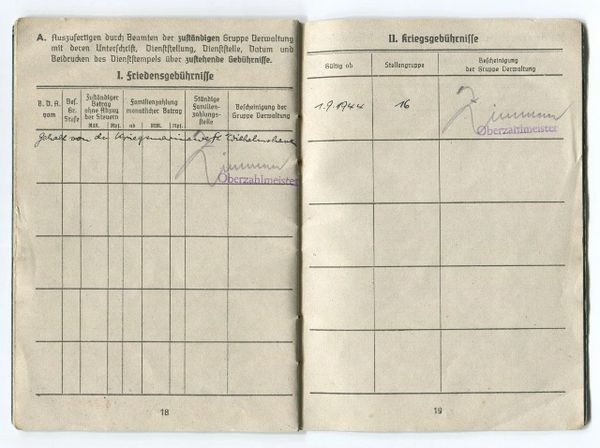 A. Auszufertigen durch Beamten der zuständigen Gruppe Verwaltung
mit deren Unterschrift, Dienststellung, Dienststelle, Datum und
Beidrucken des Dienststempels über zustehende Gebührnisse.
I. Friedensgebührnisse
B. D. A.
vom
Bes.
Gr.
Stufe
Zuständiger
Betrag
ohne Abzug
der Steuern
RM.
Rpf.
Familienzahlung
monatlicher Betrag
ab
RM.
Rpf.
Ständige
Familien-
zahlungs-
stelle
Bescheinigung der
Gruppe Verwaltung
Gehalt von der Kriegsmarinewerft Wilhelmshaven
Zimmermann
Oberzahlmeister
18
II. Kriegsgebührnisse
Gültig ab
Stellengruppe
Bescheinigung
der Gruppe Verwaltung
1.9.1944
16
Zimmermann
Oberzahlmeister
19